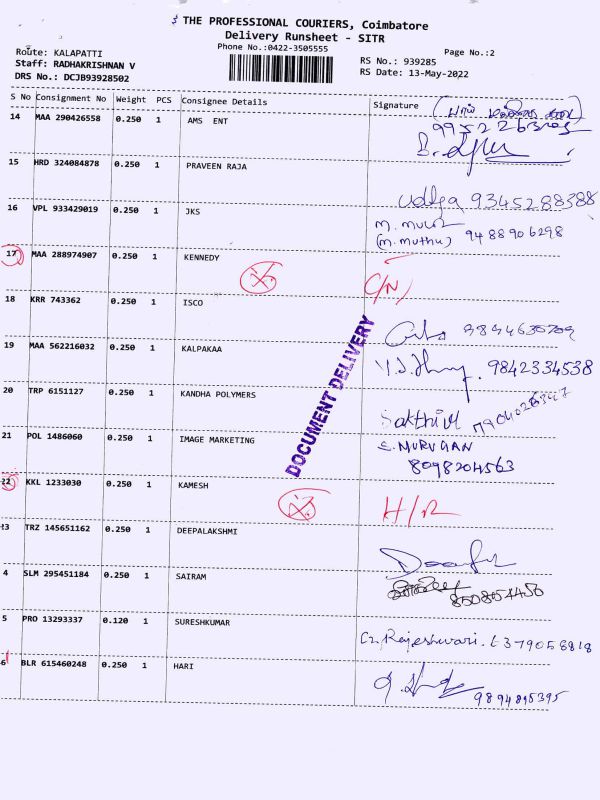 THE PROFESSIONAL COURIERS, Coimbatore
Delivery Runsheet - SITR
Phone No.:0422-3505555
Page No.:2
Route: KALAPATTI
Staff: RADHAKRISHNAN V
DRS No.: DCJB93928502
RS No.: 939285
RS Date: 13-May-2022
S No Consignment No Weight PCS Consignee Details Signature
14 MAA 290426558 0.250 1 AMS ENT
15 HRD 324084878 0.250 1 PRAVEEN RAJA
Udhya 9345288388
16 VPL 933429019 0.250 1 JKS
(M. Muthu) 9488906298
17 MAA 288974907 0.250 1 KENNEDY
C/N
18 KRR 743362 0.250 1 ISCO
19 MAA 562216032 0.250 1 KALPAKAA
9842334538
20 TRP 6151127 0.250 1 KANDHA POLYMERS
Sakthivel
21 POL 1486060 0.250 1 IMAGE MARKETING
S. MURUGAN
8098204563
22 KKL 1233030 0.250 1 KAMESH
H/R
13 TRZ 145651162 0.250 1 DEEPALAKSHMI
4 SLM 295451184 0.250 1 SAIRAM
5 PRO 13293337 0.120 1 SURESHKUMAR
G. Rajeshwari.
6 BLR 615460248 0.250 1 HARI
9894895395
DOCUMENT DELIVERY